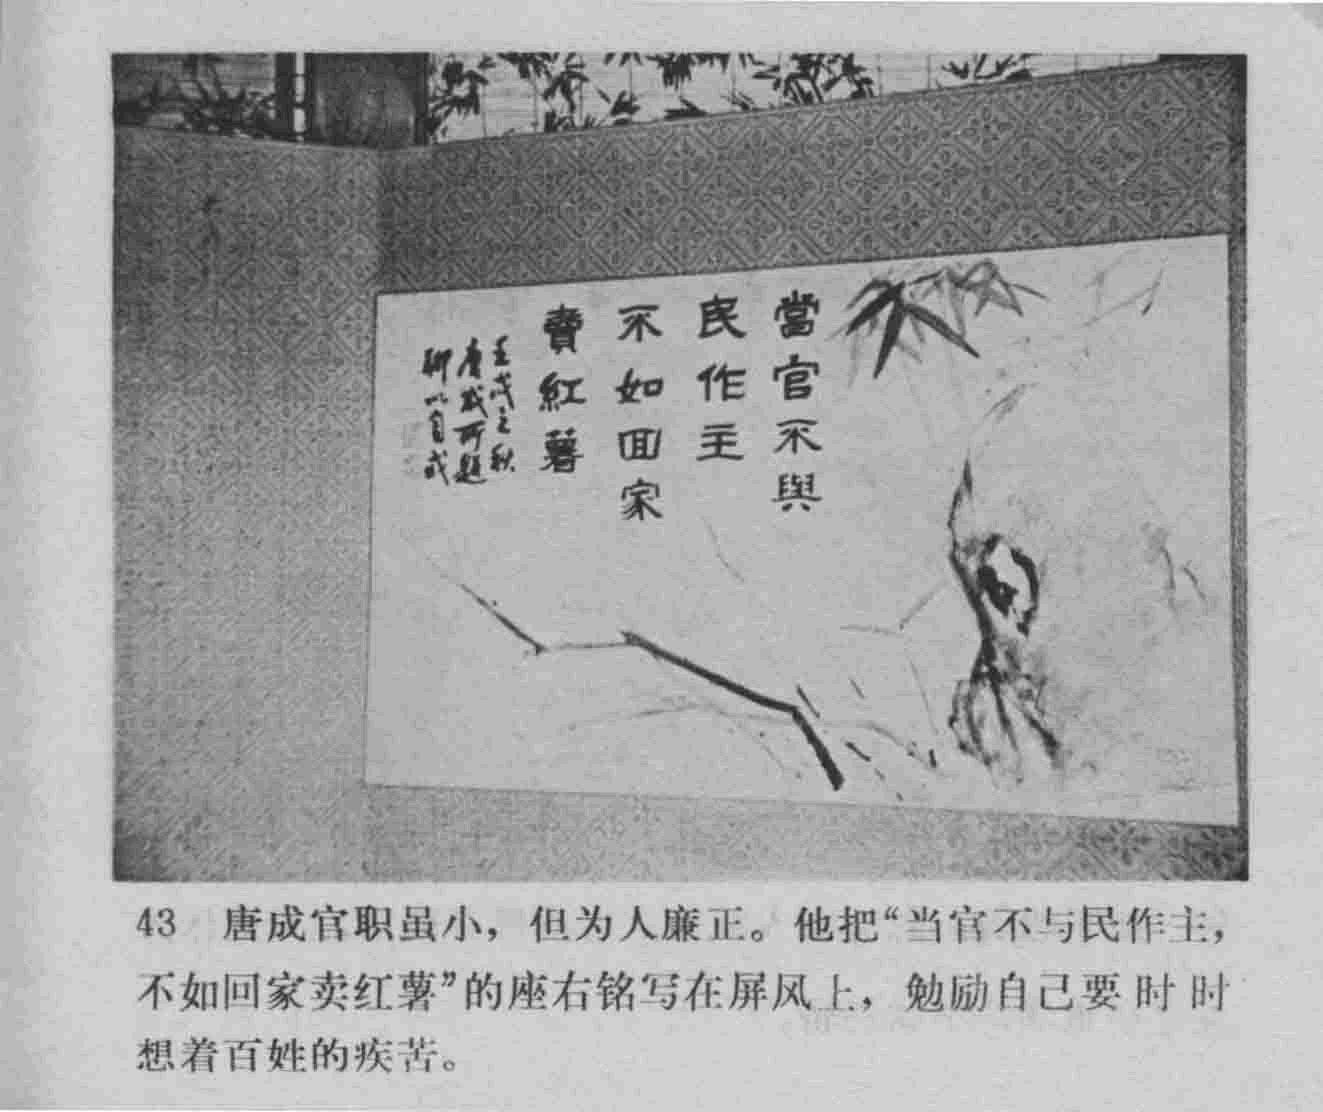 當官不與
民作主
不如回家
賣紅薯
壬戌之秋
唐成所題
聊以自戒
43 唐成官职虽小，但为人廉正。他把“当官不与民作主，
不如回家卖红薯”的座右铭写在屏风上，勉励自己要时时
想着百姓的疾苦。